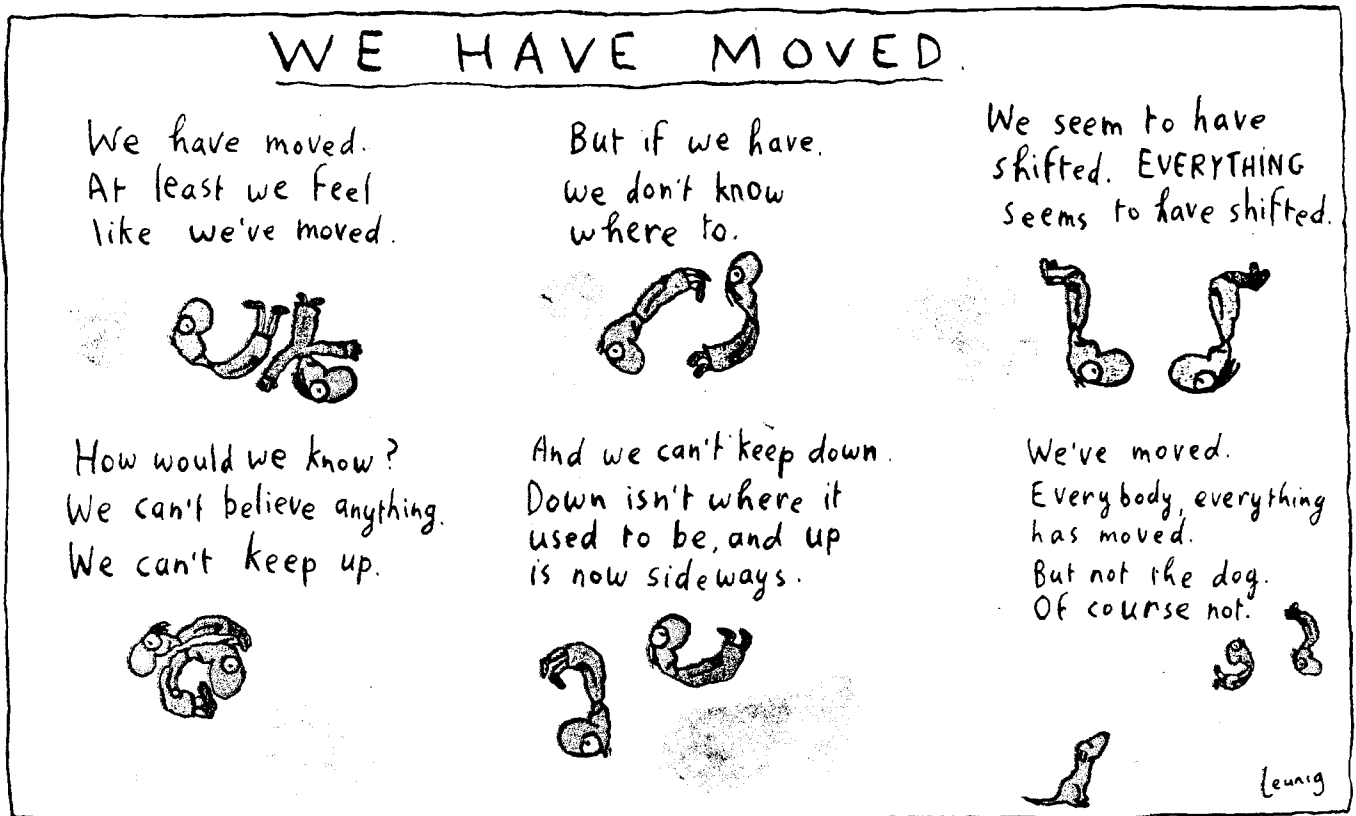 WE HAVE MOVED.
We have moved.
At least we feel
like we've moved.
But if we have,
we don't know
where to.
We seem to have
shifted. EVERYTHING
seems to have shifted.
How would we know?
We can't believe anything.
We can't keep up.
And we can't keep down.
Down isn't where it
used to be, and up
is now sideways.
We've moved.
Everybody, everything
has moved.
But not the dog.
Of course not.
Leunig